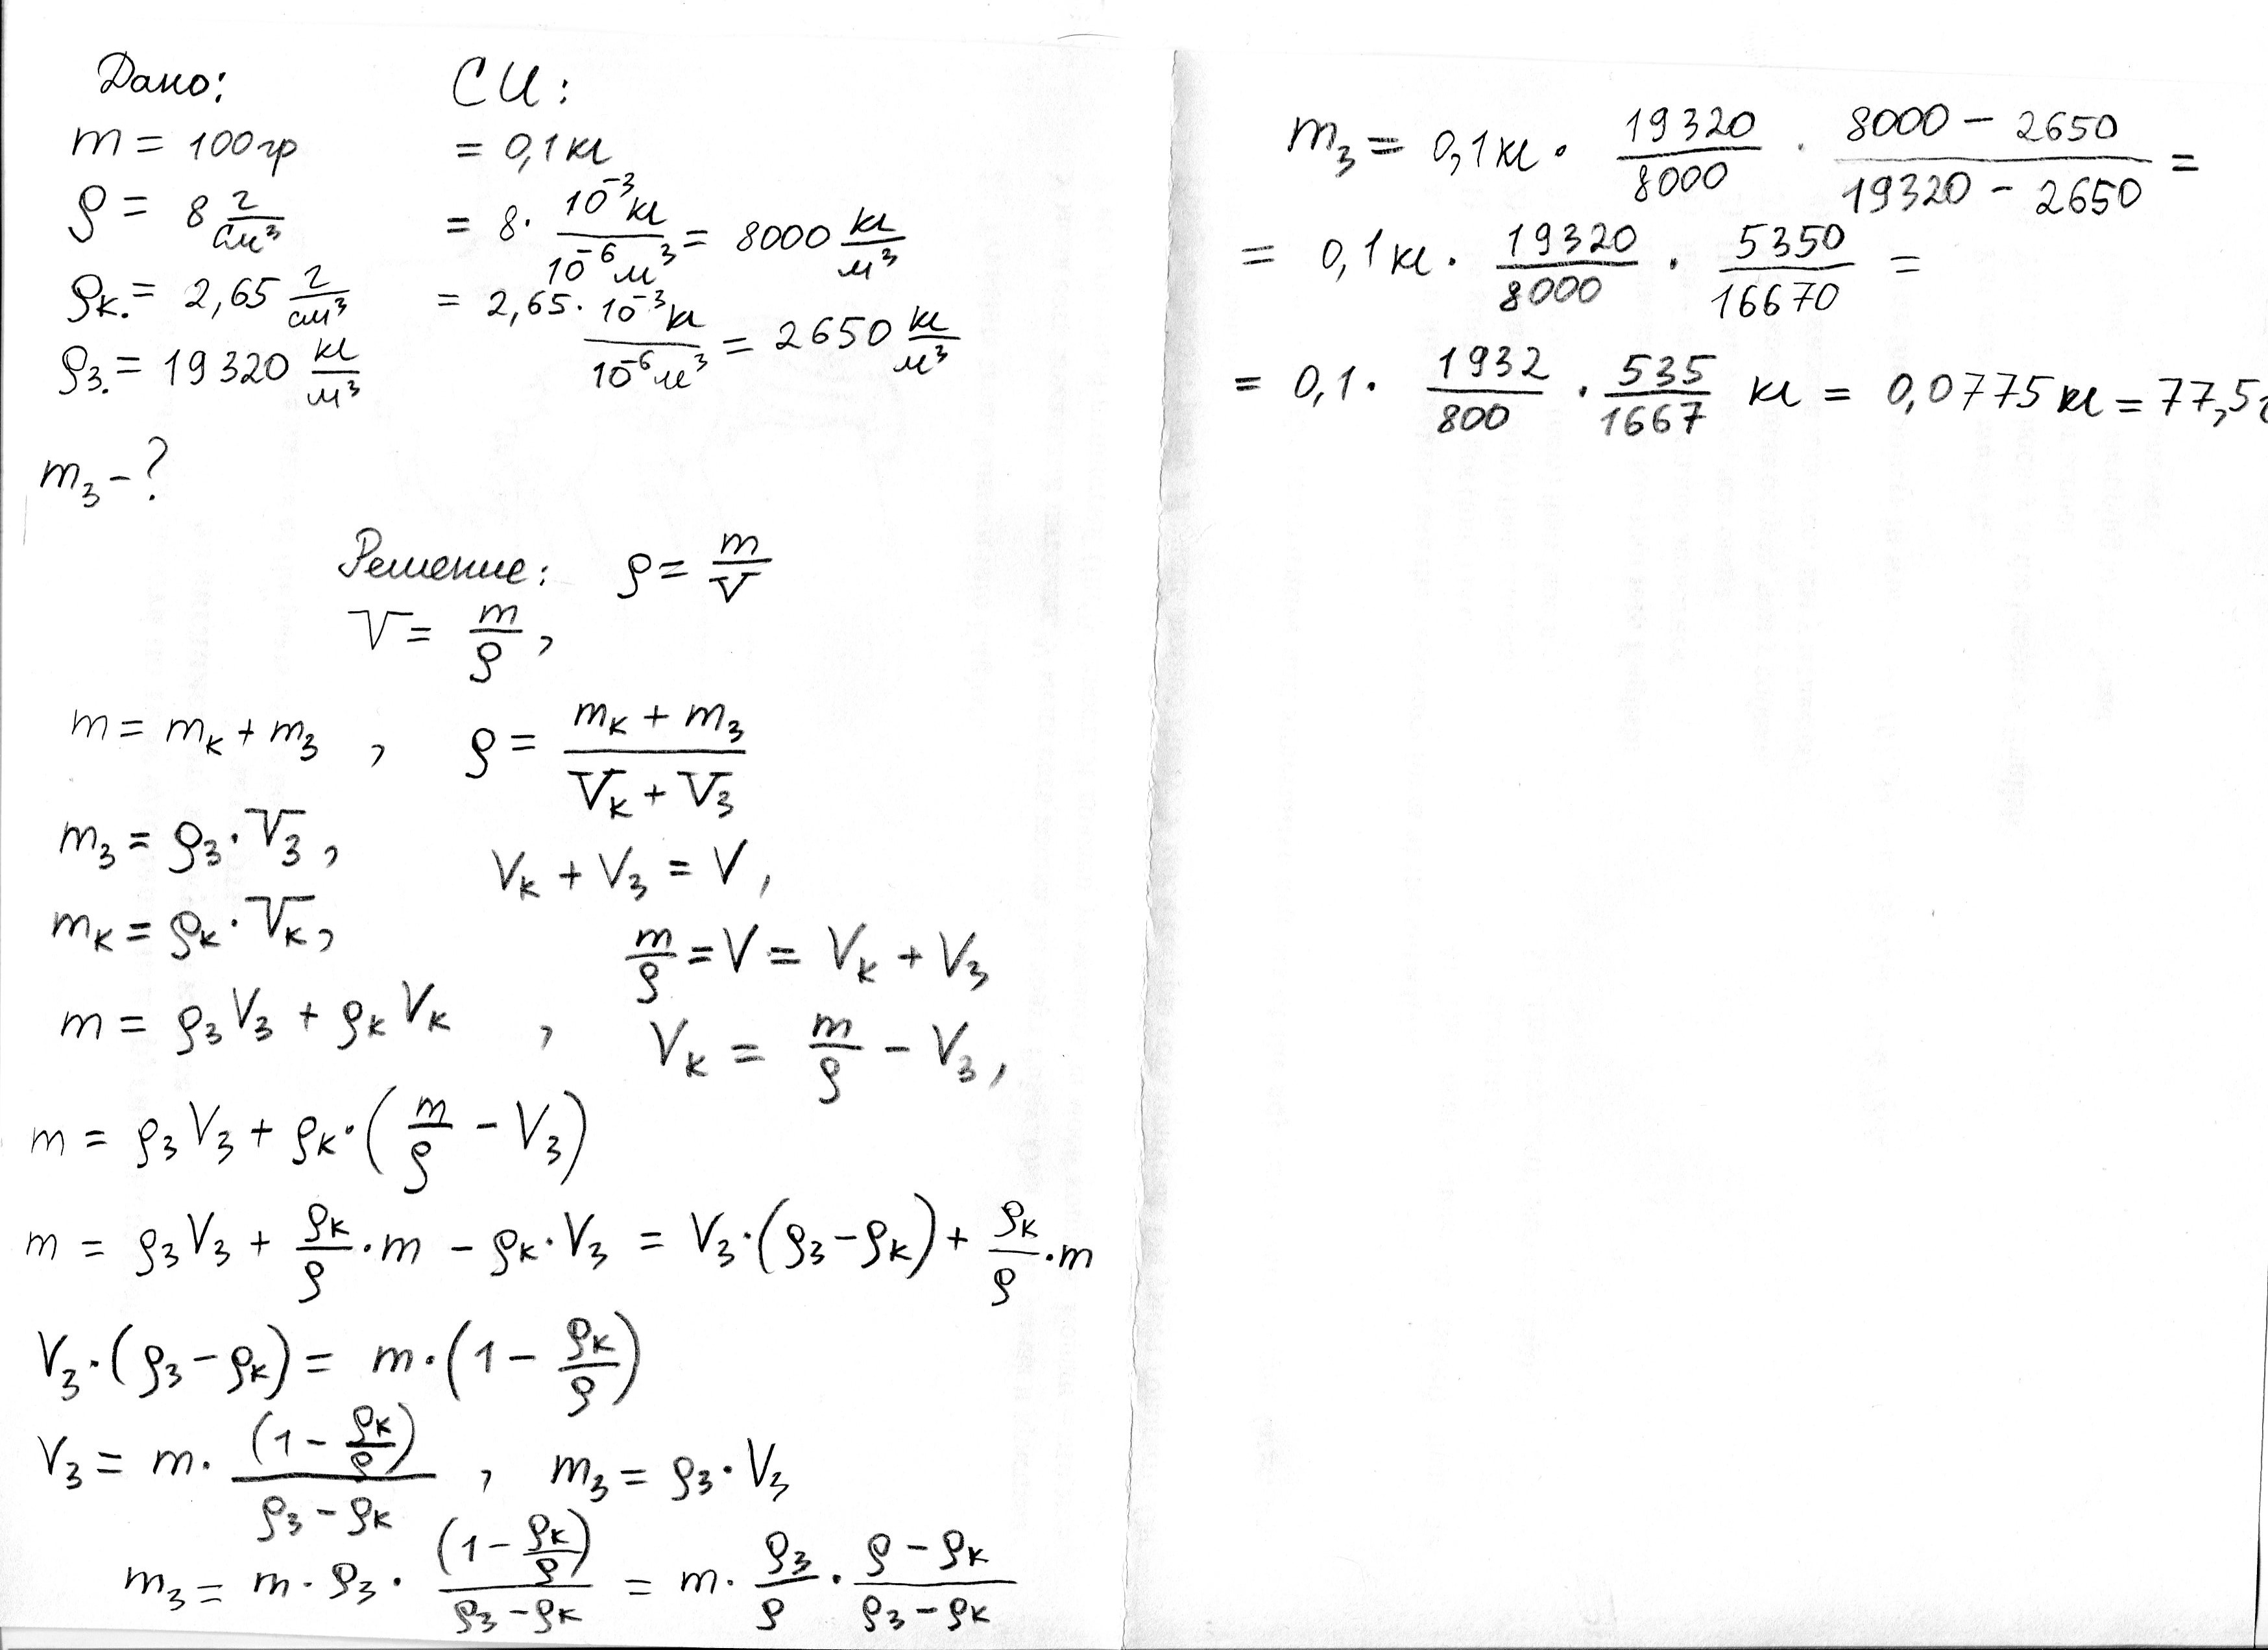 Дано: СИ:
m = 100 гр = 0,1 кг
ρ = 8 г/см³ = 8 · 10⁻³кг/10⁻⁶м³ = 8000 кг/м³
ρк. = 2,65 г/см³ = 2,65 · 10⁻³кг/10⁻⁶м³ = 2650 кг/м³
ρз. = 19320 кг/м³
mз - ?
Решение: ρ = m/V
V = m/ρ ,
m = mк + mз , ρ = (mк + mз)/(Vк + Vз)
mз = ρз · Vз , Vк + Vз = V ,
mк = ρк · Vк , m/ρ = V = Vк + Vз
m = ρз Vз + ρк Vк , Vк = m/ρ - Vз ,
m = ρз Vз + ρк · (m/ρ - Vз)
m = ρз Vз + ρк/ρ · m - ρк · Vз = Vз · (ρз - ρк) + ρк/ρ · m
Vз · (ρз - ρк) = m · (1 - ρк/ρ)
Vз = m · (1 - ρк/ρ)/(ρз - ρк) , mз = ρз · Vз
mз = m · ρз · (1 - ρк/ρ)/(ρз - ρк) = m · ρз/ρ · (ρ - ρк)/(ρз - ρк)
mз = 0,1 кг · 19320/8000 · (8000 - 2650)/(19320 - 2650) =
= 0,1 кг · 19320/8000 · 5350/16670 =
= 0,1 · 1932/800 · 535/1667 кг = 0,0775 кг = 77,5г